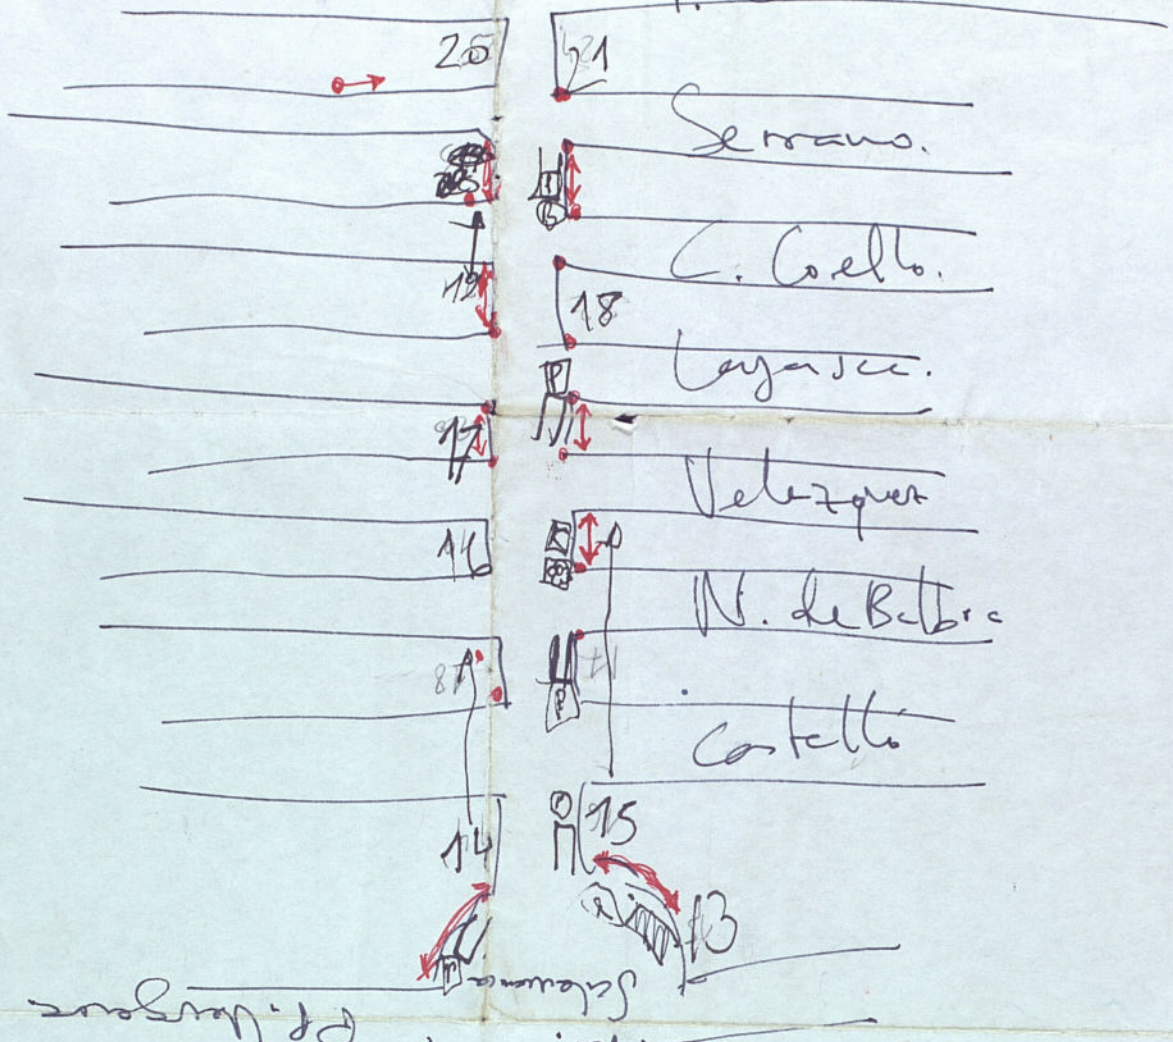 20 21
Serrano.
C. Coello.
19 18
Lagasca.
P
17
Velazquez
16
N. de Balboa
Castelló
14 15
13
Salamanca
Pp. Vergara